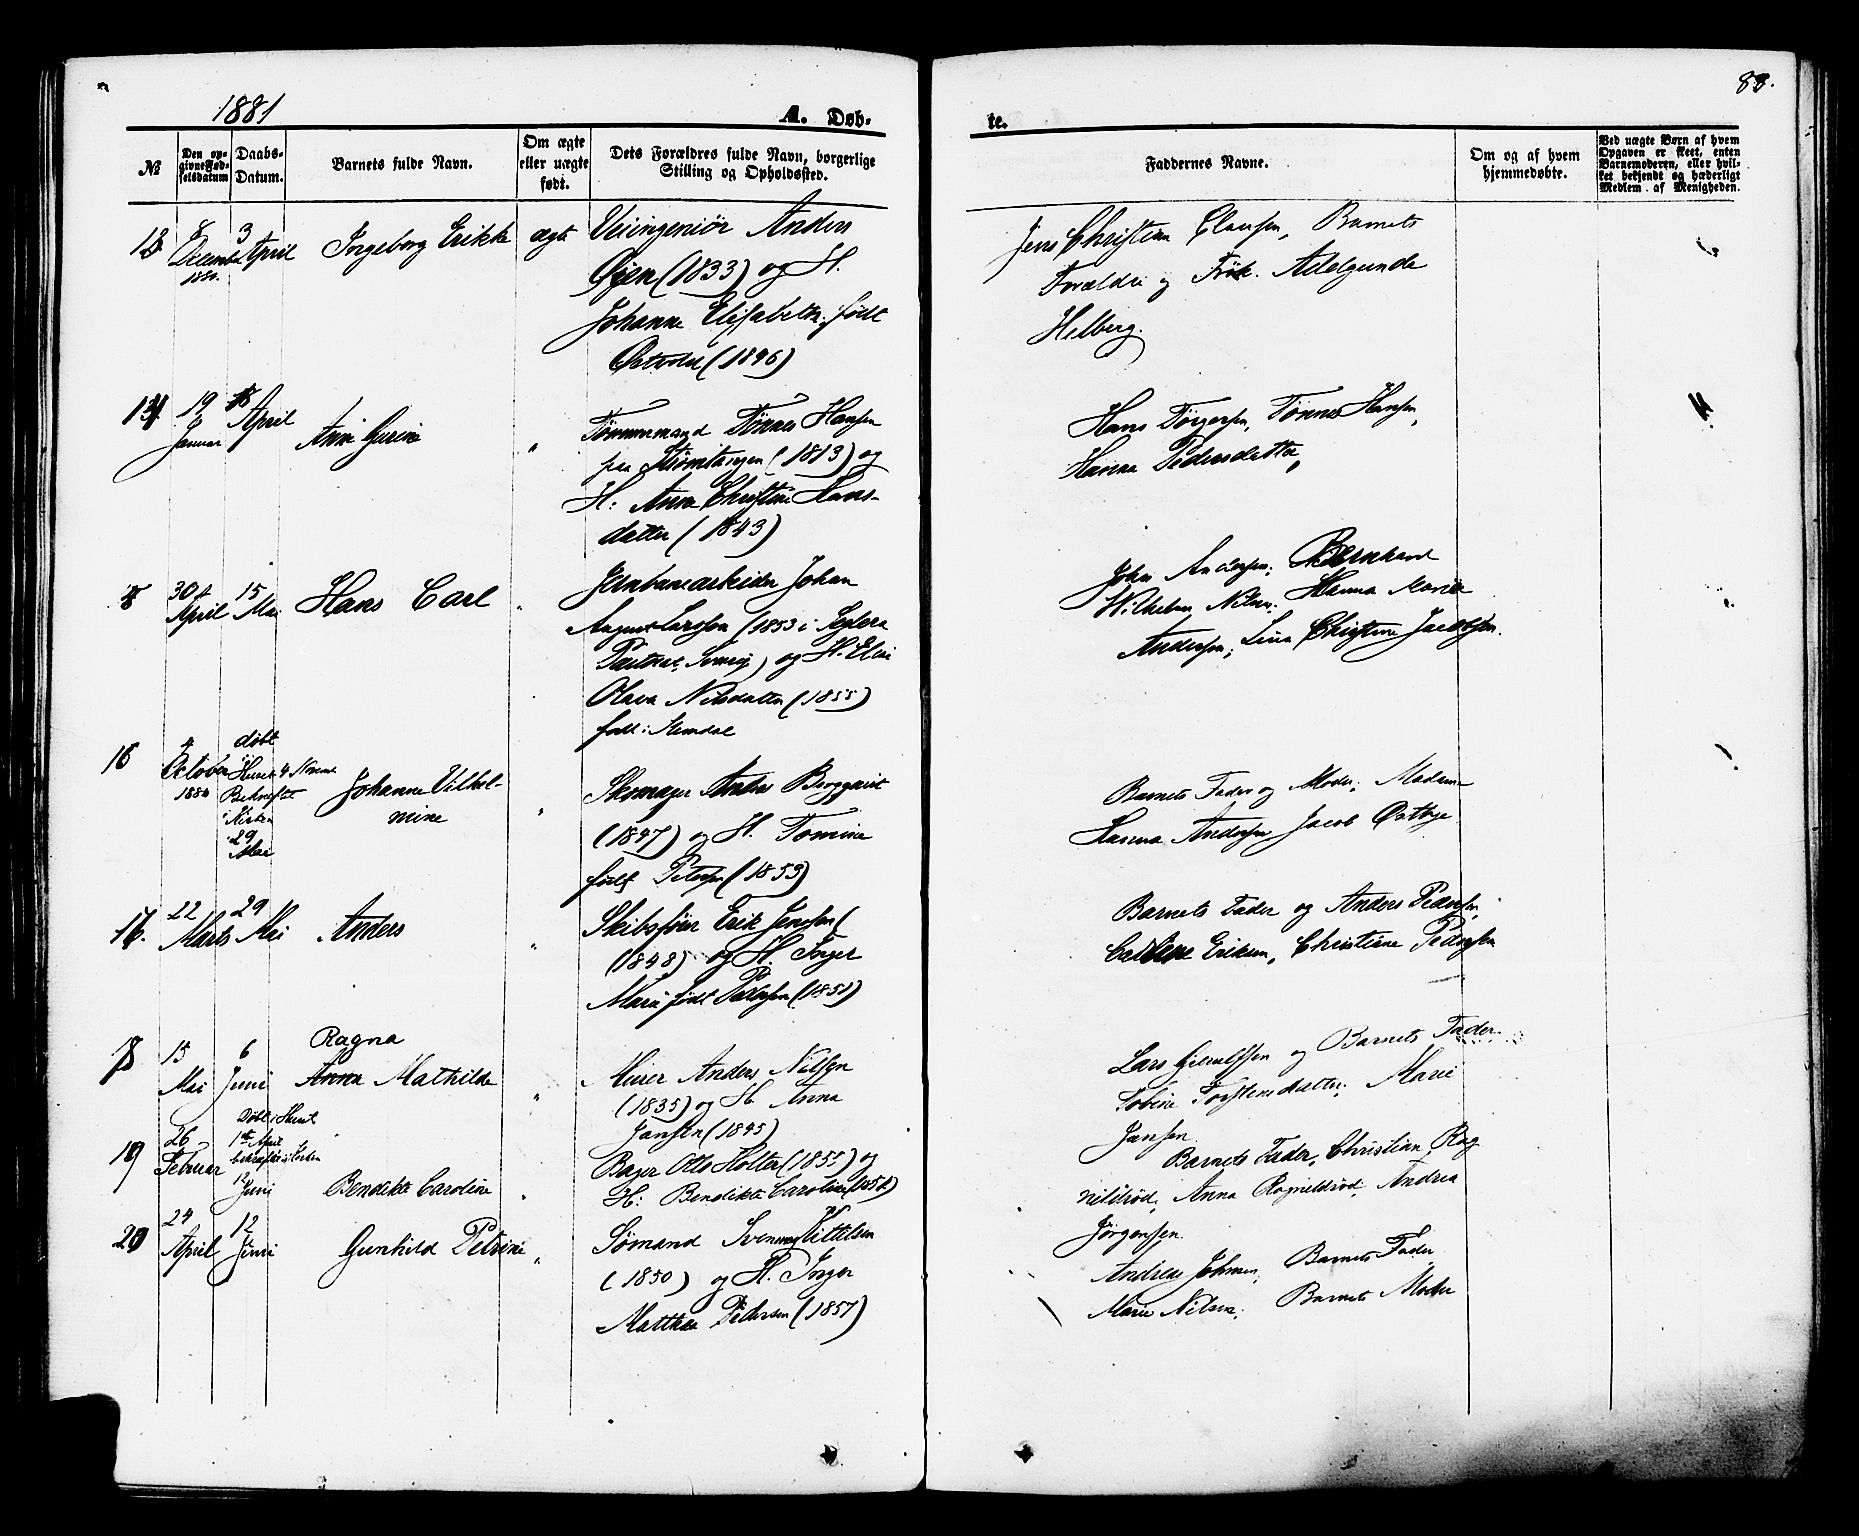 1881
A. Døb-
te.
88.
№
Den op-
givne Fød-
selsdatum
Daabs-
Datum.
Barnets fulde Navn.
Om ægte
eller uægte
født.
Dets Forældres fulde Navn, borgerlige
Stilling og Opholdssted.
Faddernes Navne.
Om og af hvem
hjemmedøbte.
Ved uægte Børn af hvem
Opgaven er skeet, enten
Barnemoderen, eller hvil-
ket bekjendt og hæderligt
Medlem af Menigheden.
8
December
1880.
3
April
Ingeborg Erikke
ægte
Veiingeniör Anders
Øien (1833) og H.
Johanne Elisabeth, født
(1846)
Jens Christian Clausen, Barnets
Forældre og Frök. Adelgunde
Helberg.
14
19
Januar
18
April
Anne Gurine
"
Tømmermand Tönnes Hansen
paa Strømtangen (1813) og
H: Anne Christine Hans-
datter (1843)
Hans Törgersen, Tönnes Hansen,
Hanna Pedersdatter,
30
April
15
Mai
Hans Carl
"
Jernbanearbeider Johan
August Larsson (1853 i
Sverig) og H. Elen
Olava Nilsdatter (1855)
født i
John Andersen; Bernhard
Wilhelm Nilsen; Hanna Marie
Andersen; Lina Christine Jacobsen.
16
4
October
1880
døbt
Huset 4 Novem
Bekræftet
i Kirken
29
Mai
Johanne Vilhel-
mine
"
Skomager Anders Bergqvist
(1847) og H. Tomine
født Petersen (1853)
Barnets Fader og Moder; Madame
Hanna Andersen Jacob Østbye
17.
22
Marts
29
Mai
Anders
"
Skibsfører Erik Jensen (
(1848) og H. Inger
Marie født Pedersen (1851)
Barnets Fader og Anders Pedersen,
Eriksen, Christine Pedersen
18
15
Mai
6
Juni
Ragna
Anna Mathilde
"
Murer Anders Nilsen
(1835) og H. Anna
Jansen (1845)
Lars Gjerulfsen og Barnets Fader.
Tobine Torstensdatter; Marie
Jansen.
19
26
Februar
Døbt i Huset
1ste April
bekræftet i Kirken
12
Juni
Bendikte Caroline
"
Bager Otto Holter (1855) og
H: Bendikte Caroline
Barnets Fader, Christian Rag
nildrød, Anna Ragnildrød, Andrea
Jörgensen
20
24
April
12
Juni
Gunhild Petrine
"
Sømand Svennung Kittilsen
(1850) og H. Inger
Matthea Pedersen (1857)
Andreas Johnsen, Barnets Fader,
Marie Nilsen, Barnets Moder